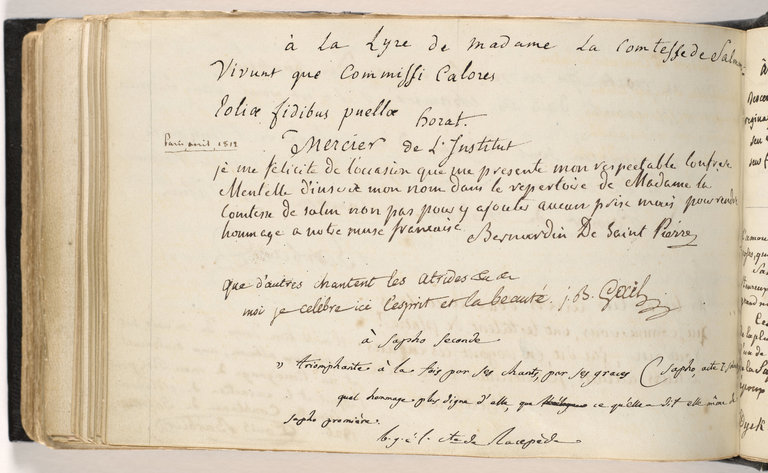 à La Lyre de madame La Comtesse de Salm
Vivunt que Commissi Calores
Eoliæ fidibus puellæ horat.
Paris, avril, 1812
Mercier de L'Institut
je me félicite de l'occasion que me presente mon respectable Confrere
Mentelle d'inserer mon nom dans le repertoire de Madame la
Comtesse de salm non pas pour y ajouter aucun prix mais pour rendre
hommage a notre muse francaise
Bernardin De Saint Pierre
que d'autres chantent les atrides
moi je celèbre ici l'esprit et la beauté. j. B. Gail
à Sapho seconde
" triomphante à la fois par ses chants, par ses graces (Sapho, acte I,
quel hommage plus digne d'elle, que ce qu'elle a dit elle même de
sapho première.
b. g. é. l. cte de Lacepède